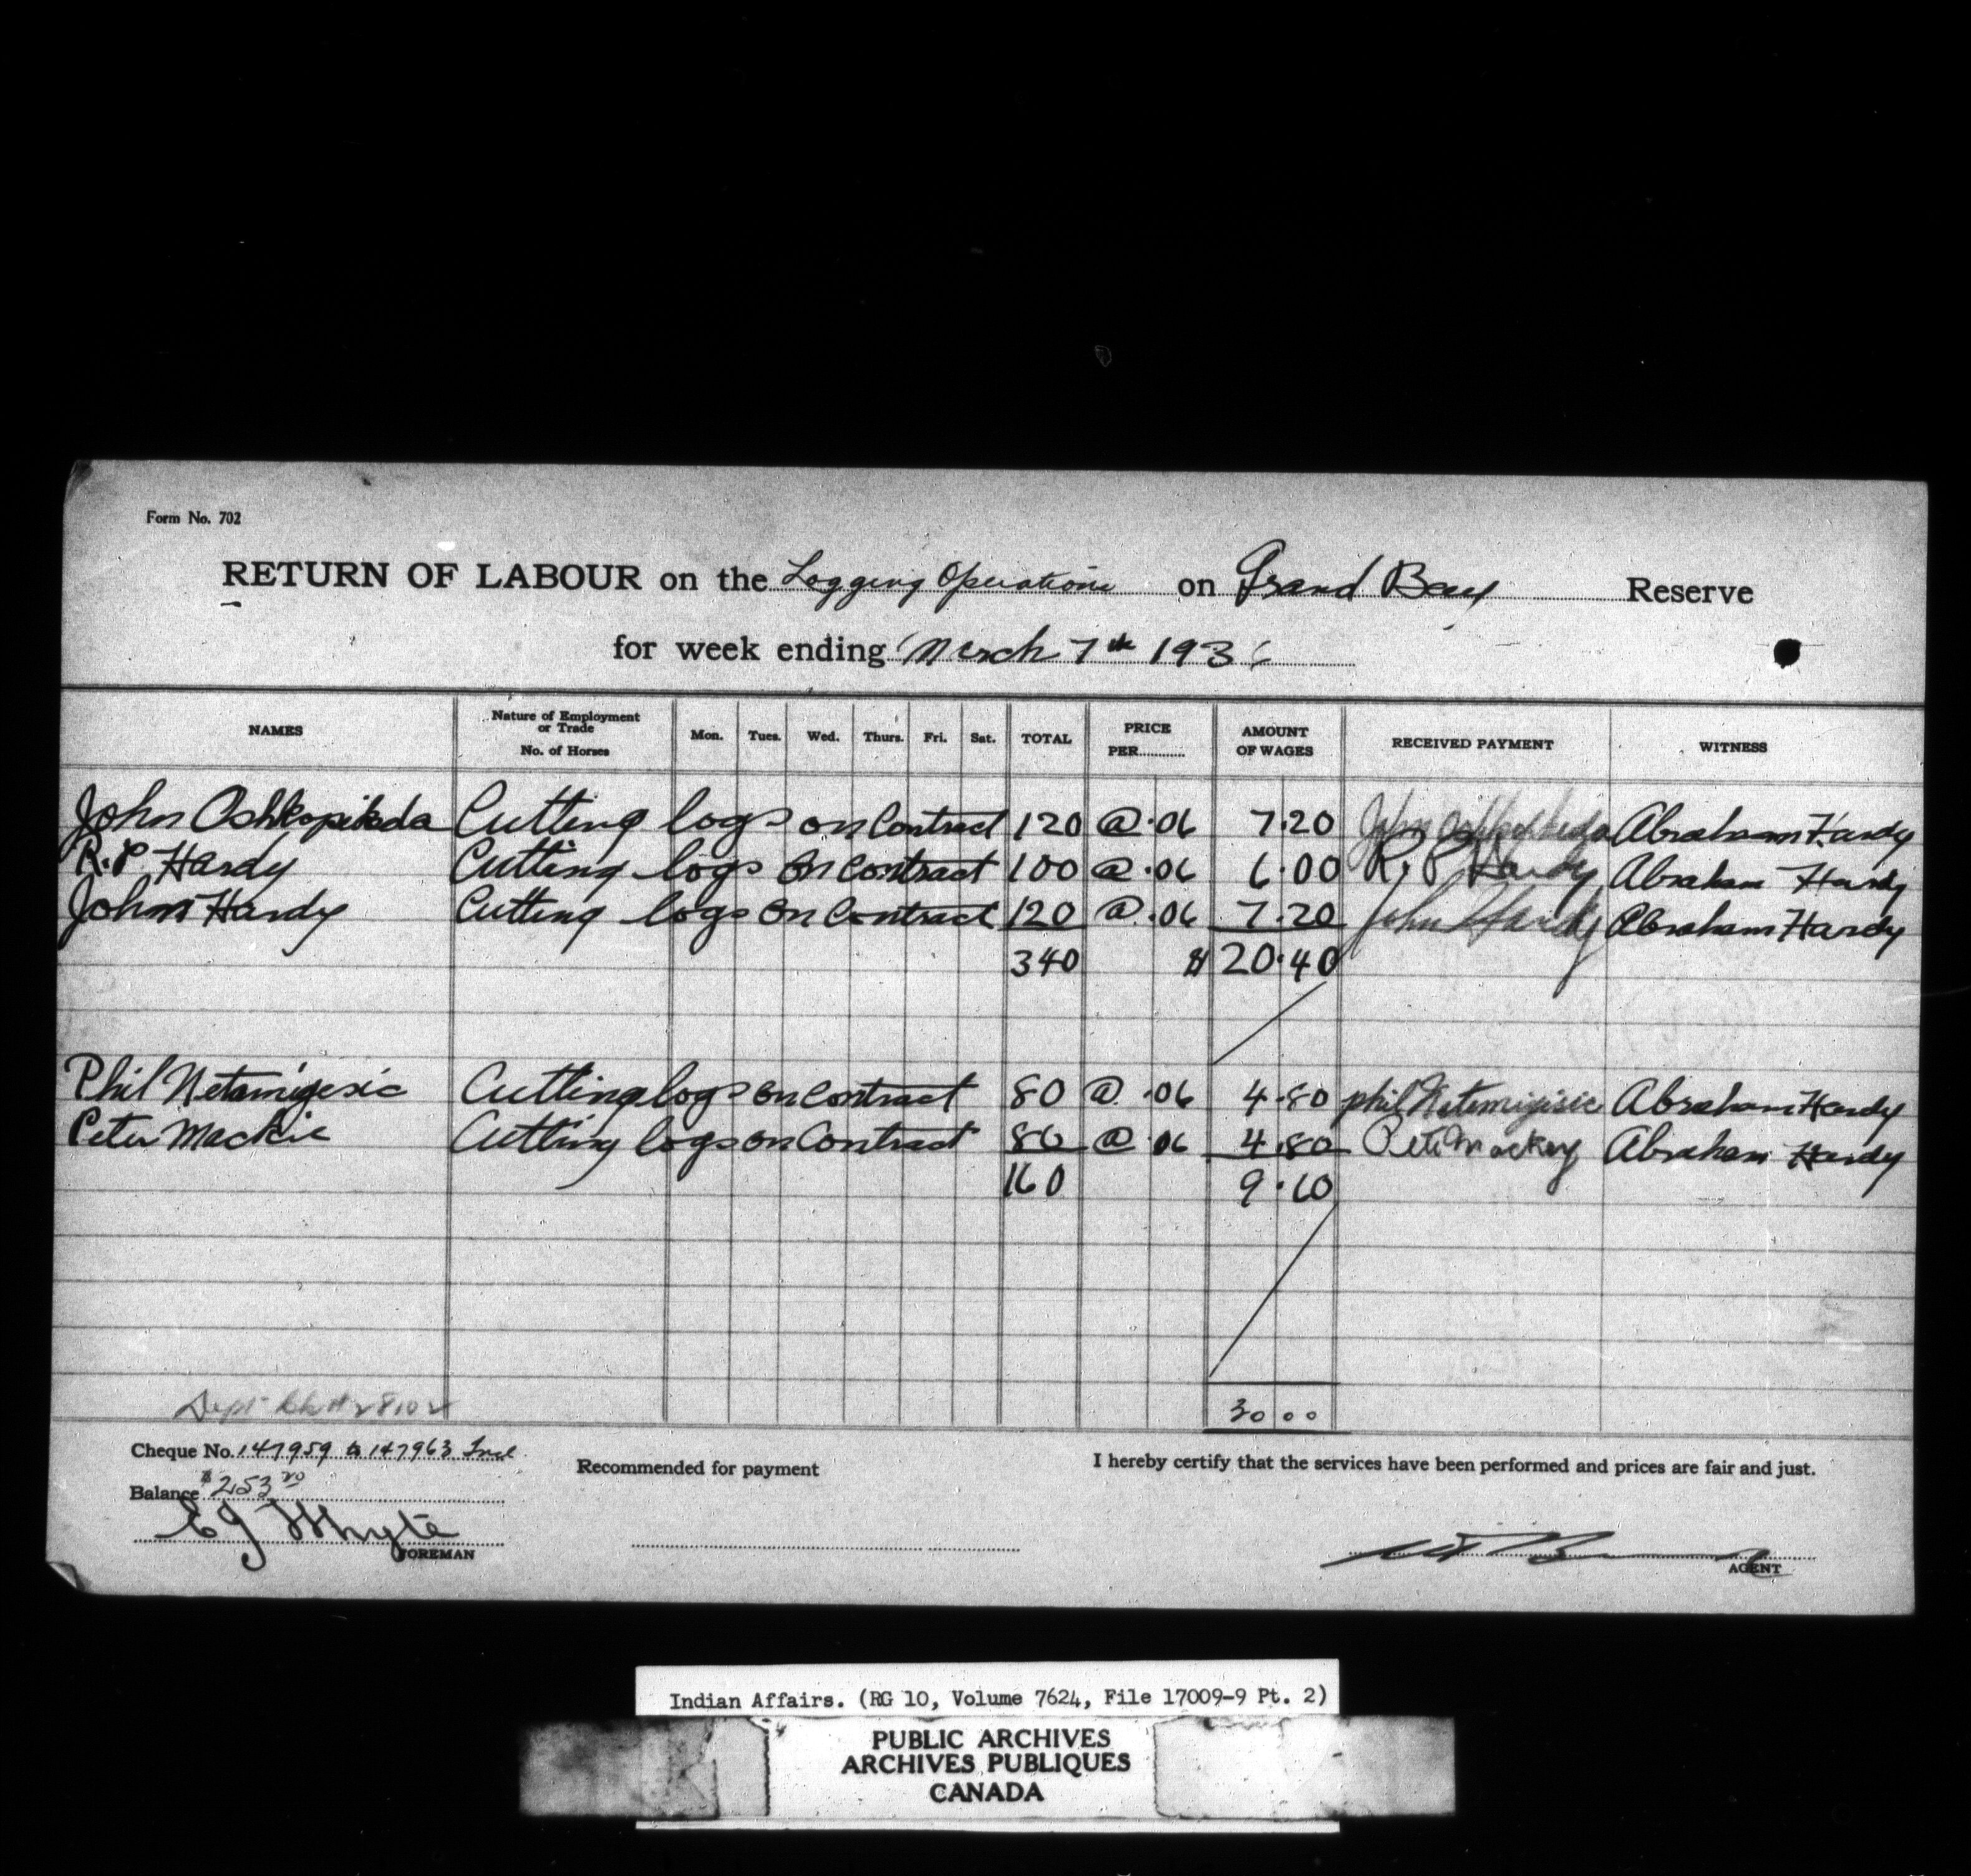 Form No. 702
RETURN OF LABOUR on the Logging Operations on Grand Bay Reserve
for week ending March 7th 1936
NAMES Nature of Employment or Trade No. of Horses Mon. Tues. Wed. Thurs. Fri. Sat. TOTAL PRICE PER AMOUNT OF WAGES RECEIVED PAYMENT WITNESS
John Oshkopikeda Cutting logs on Contract 120 @ .06 7.20 John Abraham Hardy
R.P Hardy Cutting logs on Contract 100 @ .06 6.00 R. P Hardy Abraham Hardy
John Hardy Cutting logs on Contract 120 @ .06 7.20 John Hardy Abraham Hardy
340 $ 20.40
Phil Netamigesic Cutting logs on Contract 80 @ .06 4.80 phil Netemigisic Abraham Hardy
Peter Mackie Cutting logs on Contract 80 @ .06 4.80 Pete Mackey Abraham Hardy
160 9.60
Dept. Ch # 28102
30 00
Cheque No. 147959 to 147963 Incl
Recommended for payment
I hereby certify that the services have been performed and prices are fair and just.
Balance $253.20
E J Whyte
FOREMAN
AGENT
Indian Affairs. (RG 10, Volume 7624, File 17009-9 Pt. 2)
PUBLIC ARCHIVES
ARCHIVES PUBLIQUES
CANADA